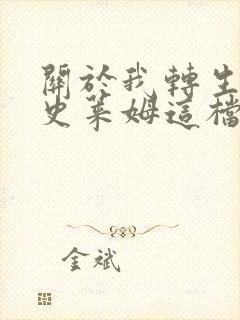 關於我轉生
史萊姆這檔
金斌